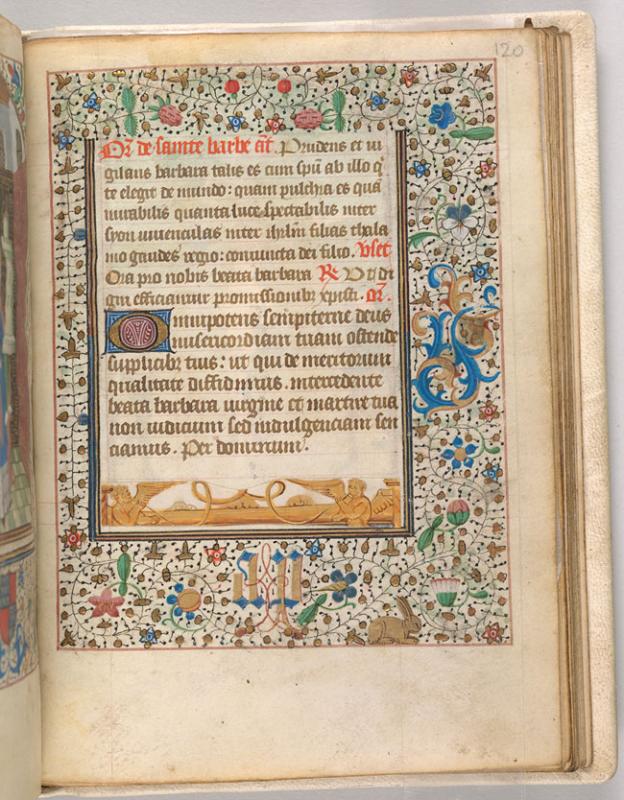 120
Or̄ de sainte barbe āt. Prudens et ui
gilans barbara talis es cum spū ab illo q̄
te elegit de mundo: quam pulchra es quā
mirabilis quanta luce spectabilis inter
syon iuuenculas inter ihrlm̄ filias thala
mo gaudes regio: coniuncta dei filio. Vset
Ora pro nobis beata barbara R Vt di
gni efficiamur promissionibꝰ xpisti. or̄.
Omnipotens sempiterne deus
misericordiam tuam ostende
supplicibꝰ tuis: ut qui de meritorum
qualitate diffidimus. intercedente
beata barbara uirgine et martire tua
non iudicium sed indulgenciam sen
ciamus. Per dominum.